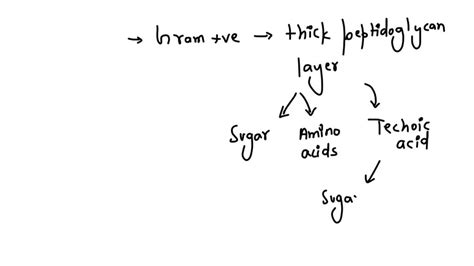 → Gram +ve → thick peptidoglycan
layer
Sugar Amino acids Techoic acid
Suga